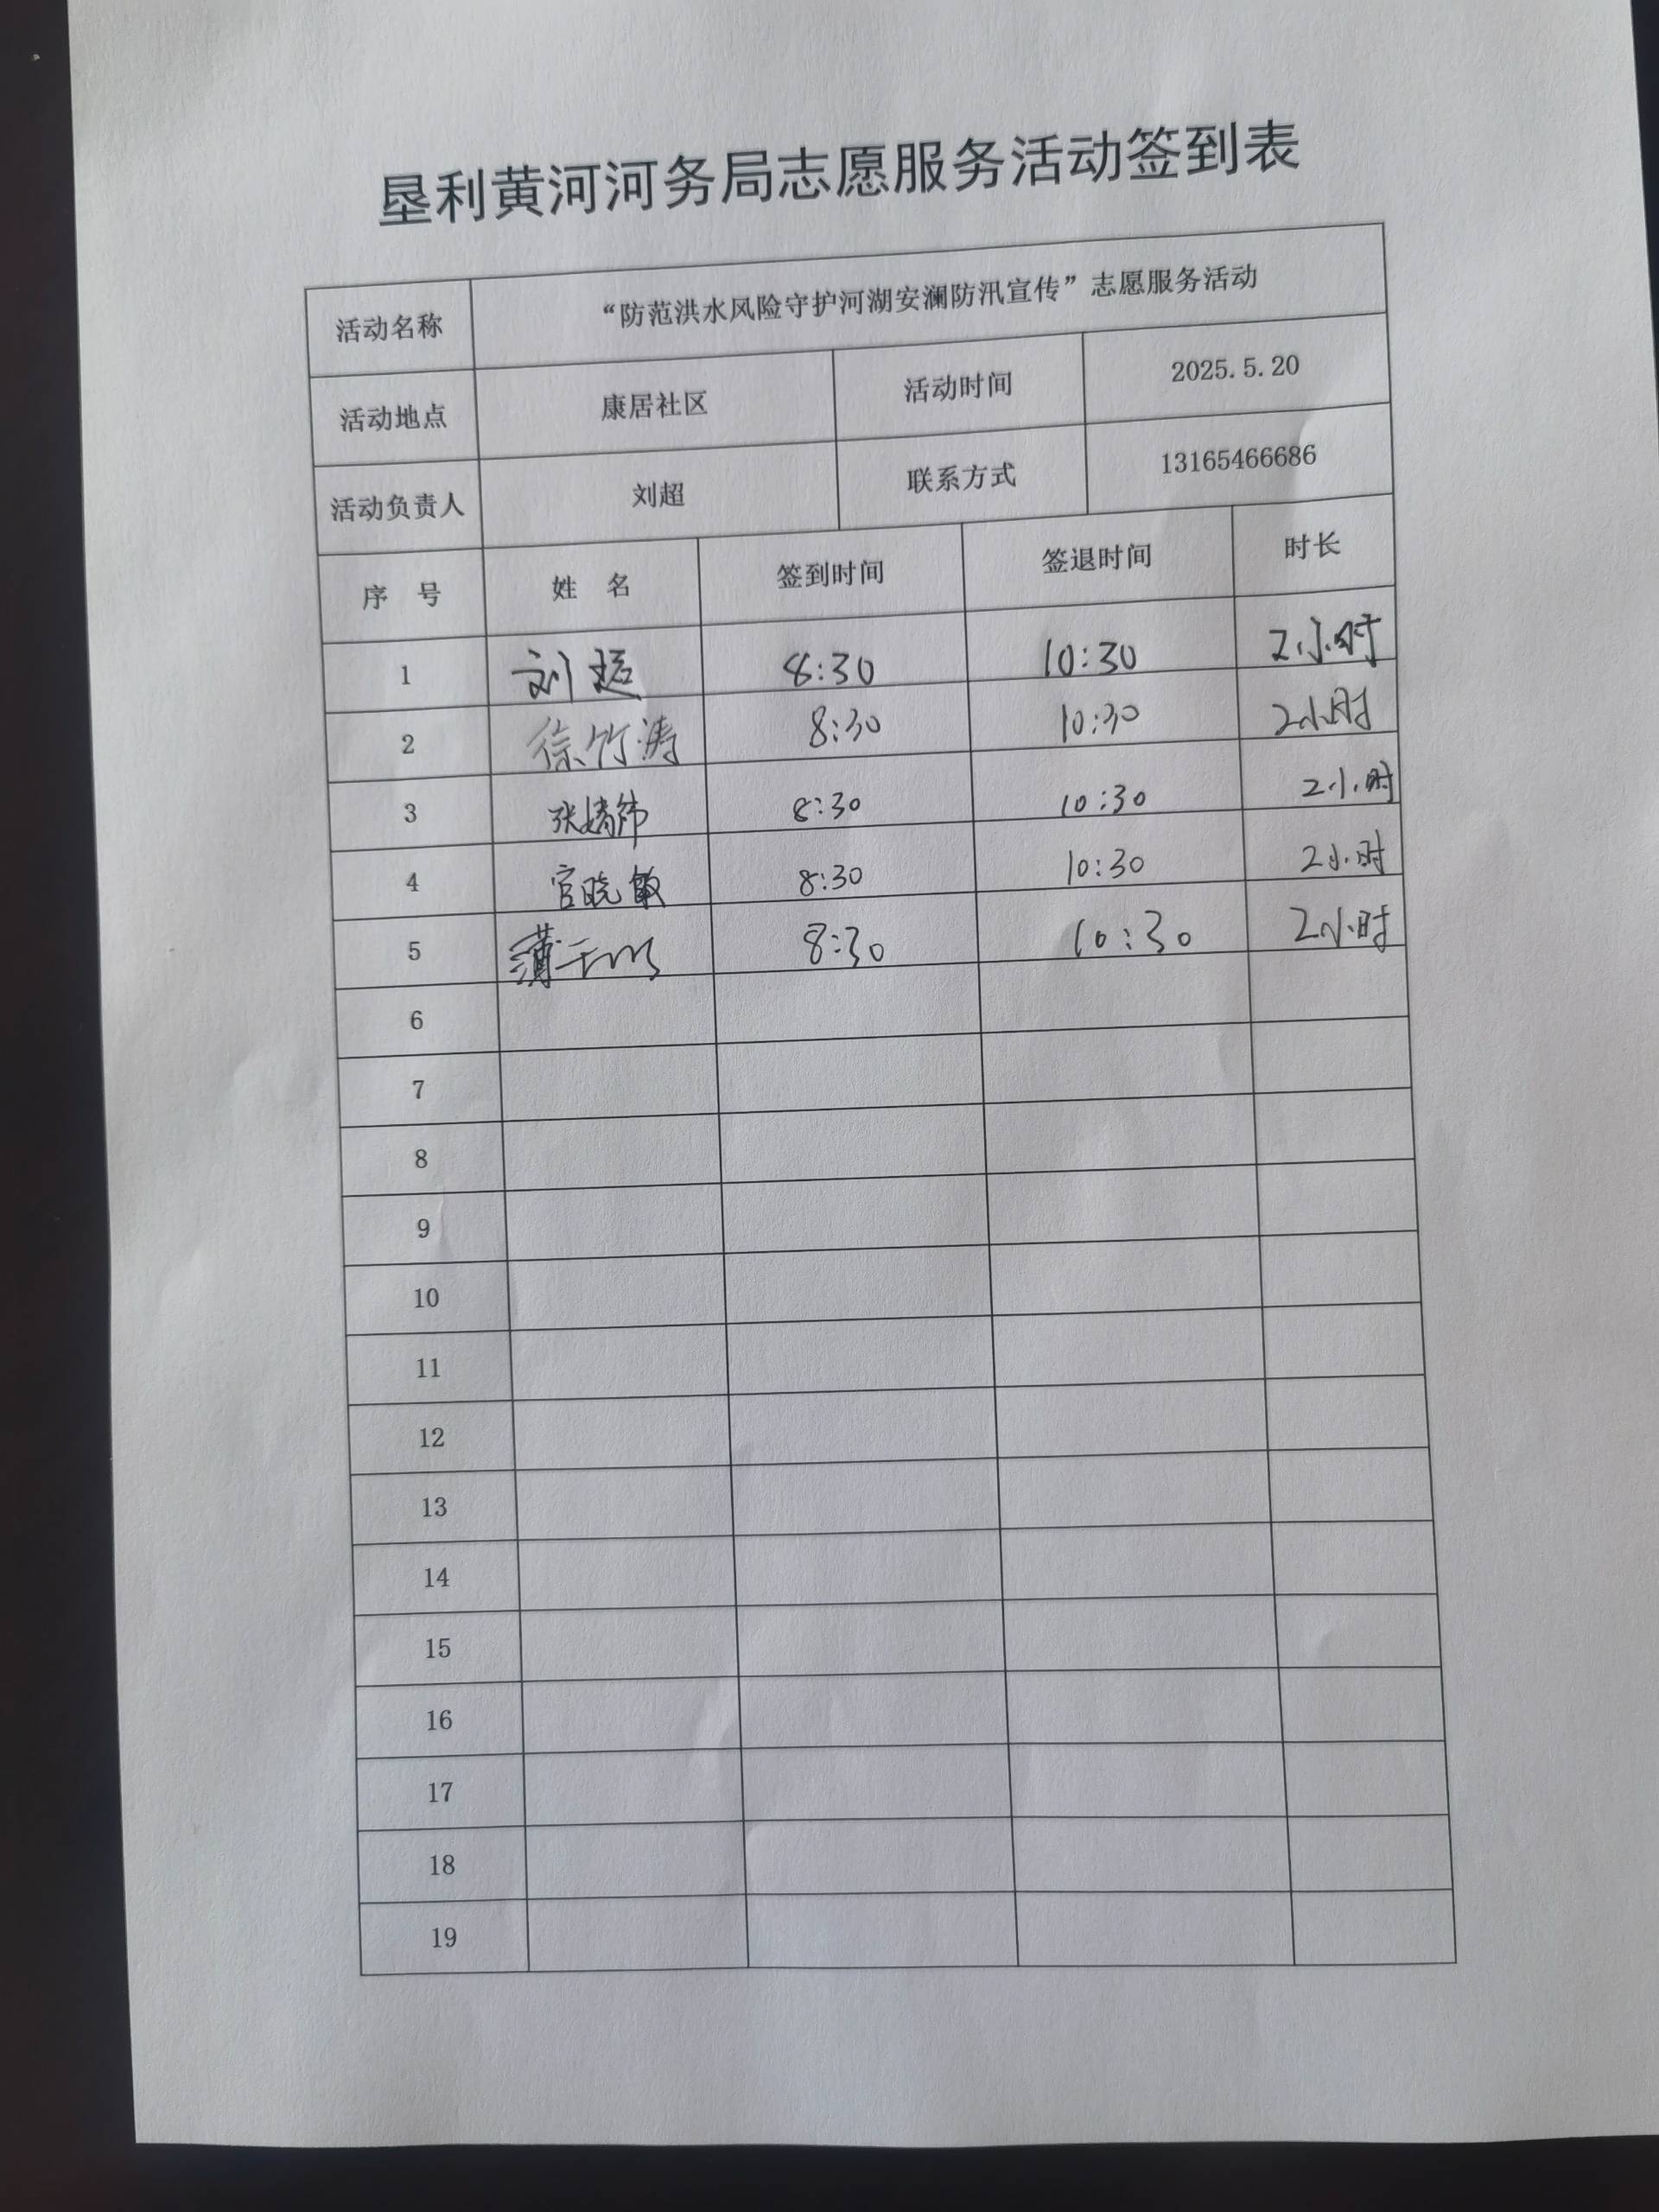 垦利黄河河务局志愿服务活动签到表
活动名称 “防范洪水风险守护河湖安澜防汛宣传”志愿服务活动
活动地点 康居社区 活动时间 2025.5.20
活动负责人 刘超 联系方式 13165466686
序 号 姓 名 签到时间 签退时间 时长
1 刘超 8:30 10:30 2小时
2 徐竹涛 8:30 10:30 2小时
3 张婧 8:30 10:30 2小时
4 官晓敏 8:30 10:30 2小时
5 薄 8:30 10:30 2小时
6
7
8
9
10
11
12
13
14
15
16
17
18
19